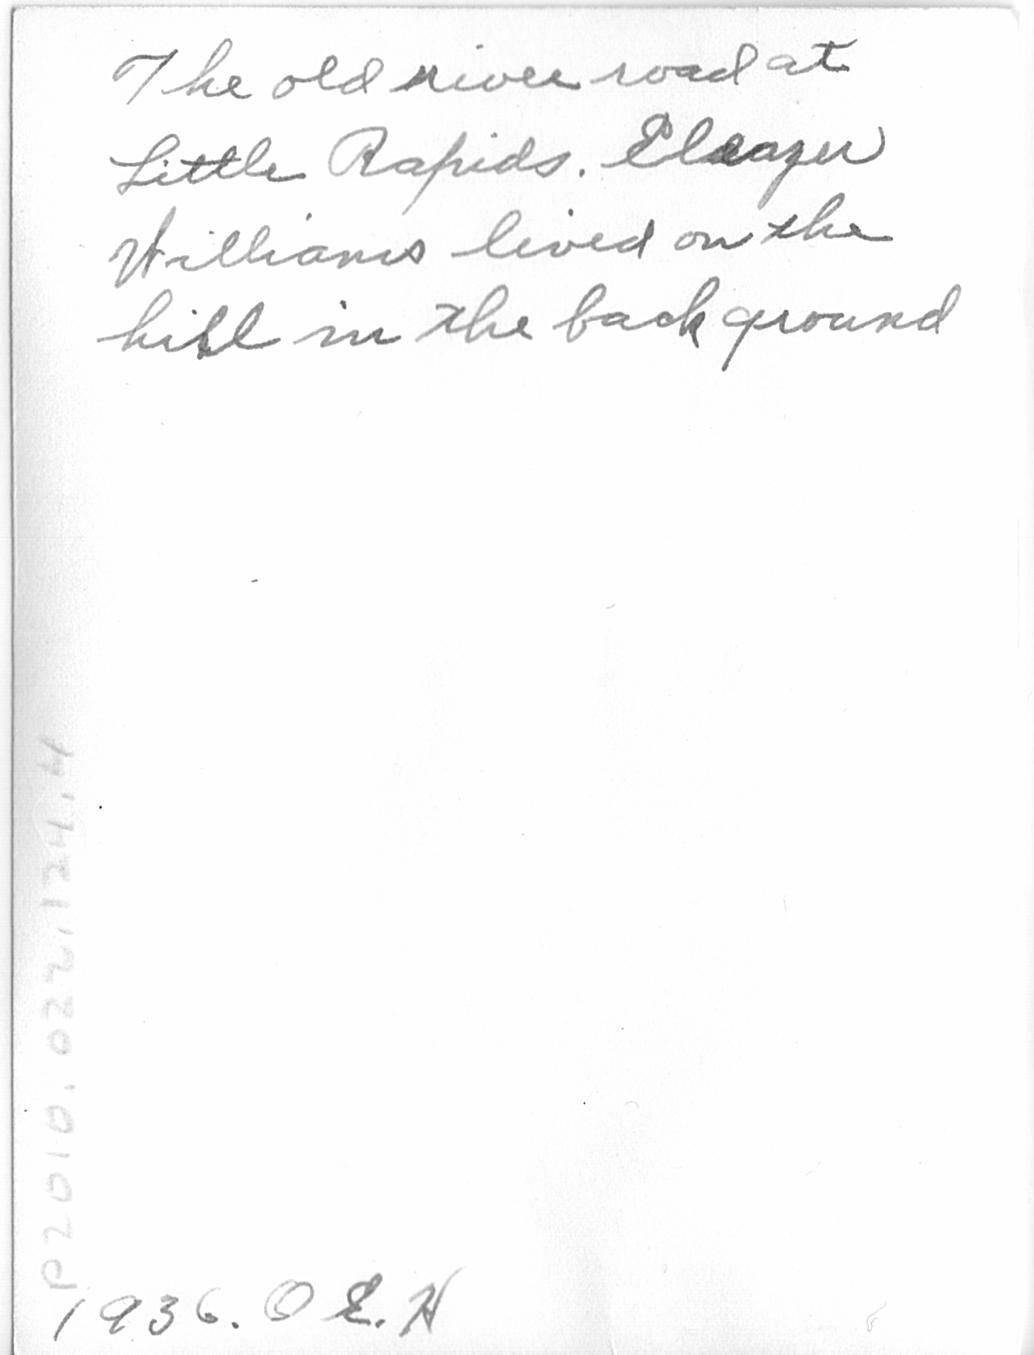 The old river road at
Little Rapids. Eleazer
Williams lived on the
hill in the back ground
P2010.022.124.4
1936. O E. H